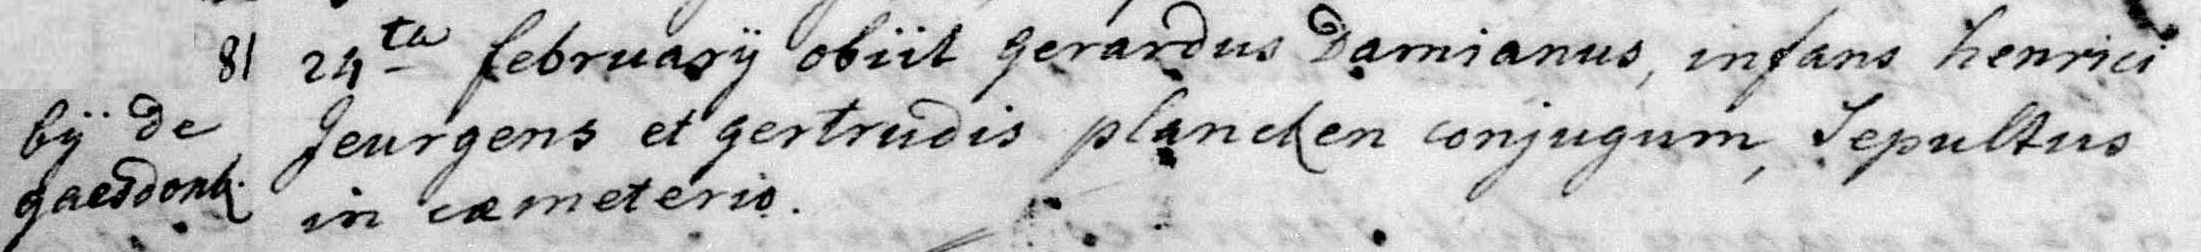 81 24ta februarÿ obiit gerardus Damianus, infans henrici
bÿ de Jeurgens et gertrudis plancken conjugum, Sepultus
gaesdonk. in cœmeterio.